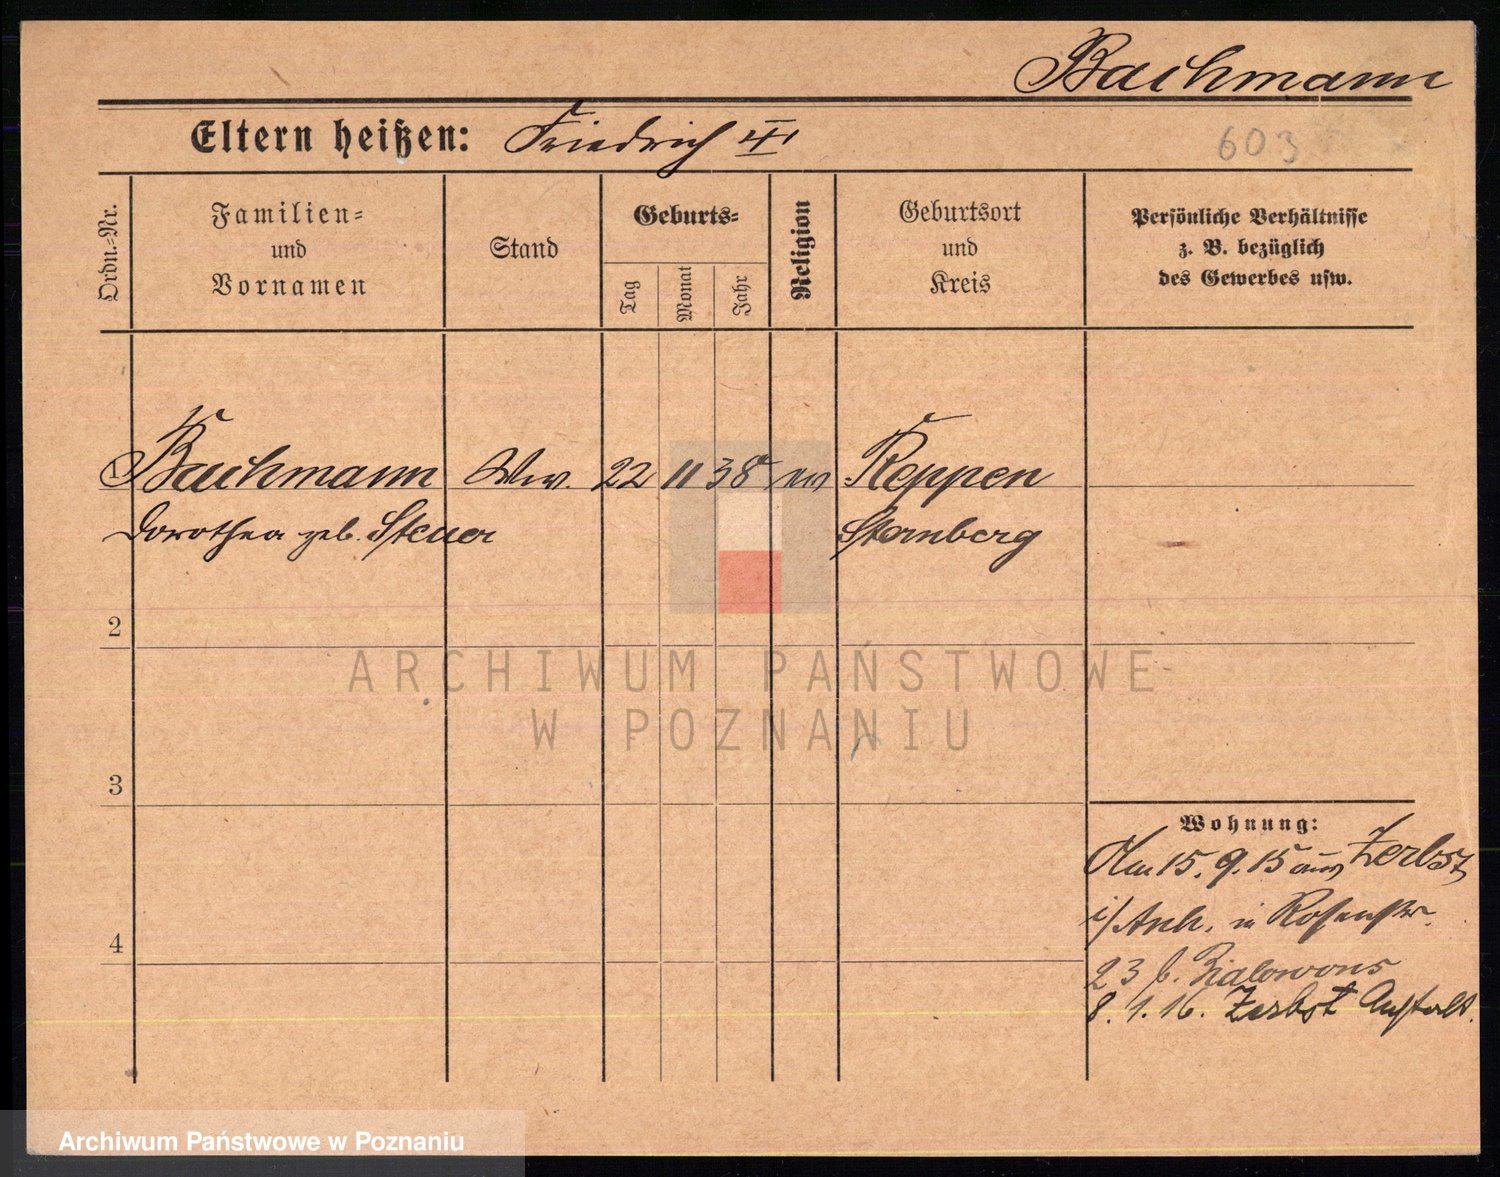 Bachmann
Eltern heißen: Friedrich III
603
Ordn.-Nr.
Familien-
und
Vornamen
Stand
Geburts-
Tag
Monat
Jahr
Religion
Geburtsort
und
Kreis
Persönliche Verhältnisse
z. B. bezüglich
des Gewerbes usw.
1 Bachmann Ww. 22 11 38 ev Reppen
Dorothea geb. Steuer Sternberg
2
ARCHIWUM PAŃSTWOWE
W POZNANIU
3
Wohnung:
Am 15. 9. 15 aus Zerbst
i/Anh. in Rosenstr.
23 b. Bialowons
4
8. 1. 16. Zerbst Anstalt.
Archiwum Państwowe w Poznaniu